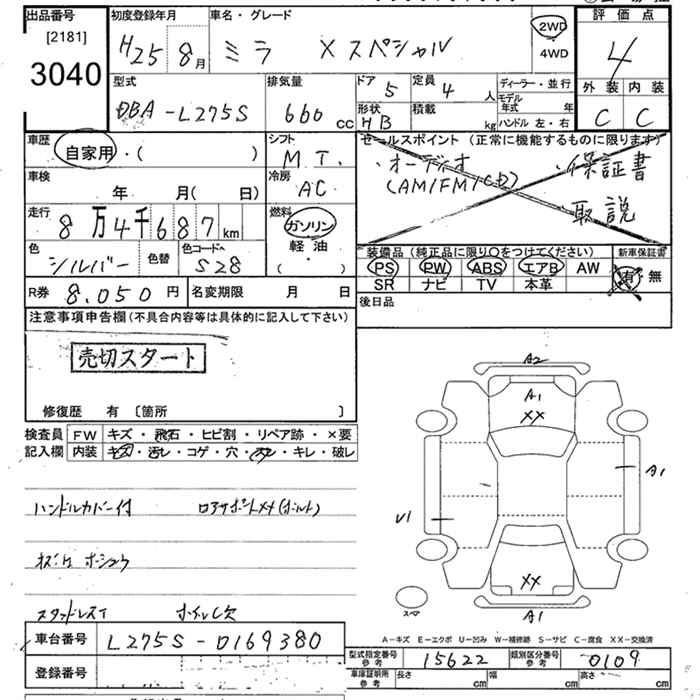 出品番号 初度登録年月 車名・グレード 評価点
[2181] H25 8月 ミラ Xスペシャル 2WD 4
3040 4WD
型式 排気量 ドア 5 定員 4人 ディーラー・並行 外装 内装
DBA-L275S 660cc 形状 HB 積載 kg モデル年式 年 C C
ハンドル 左・右
車歴 シフト セールスポイント(正常に機能するものに限ります)
自家用・( ) M T. ・オーディオ ・保証書
車検 冷房 (AM/FM/CD)
年 月( 日) AC ・取説
走行 燃料
8万4千687km ガソリン
色 色替 色コード 軽油 装備品(純正品に限り○をつけてください) 新車保証書
シルバー S28 ( ・ ) PS PW ABS エアB AW 有 無
SR ナビ TV 本革
R券 8.050円 名変期限 月 日 後日品
注意事項申告欄(不具合内容等は具体的に記入して下さい)
売切スタート
修復歴 有 〔箇所 〕
検査員 FW キズ・飛石・ヒビ割・リペア跡・×要
記入欄 内装 キズ・汚レ・コゲ・穴・スレ・キレ・破レ
ハンドルカバー付 ロアサポートメタ(ボルト)
スタッドレス
A2
A1
XX
A1
U1
XX
スペア
A1
A-キズ E-エクボ U-凹み W-補修跡 S-サビ C-腐食 XX-交換済
車台番号 L275S-0169380
登録番号
型式指定番号 参考 15622 類別区分番号 参考 0109
車庫証明所 参考 長さ cm 幅 cm 高さ cm